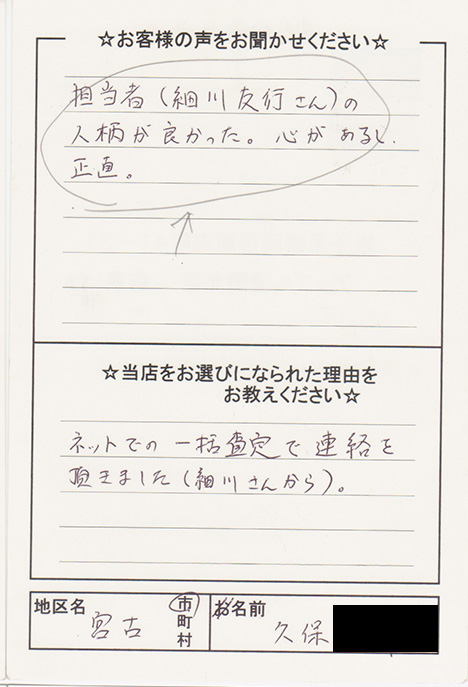 ☆お客様の声をお聞かせください☆
担当者(細川友行さん)の
人柄が良かった。心があるし、
正直。
☆当店をお選びになられた理由を
お教えください☆
ネットでの一括査定で連絡を
頂きました(細川さんから)。
地区名 宮古 市町村 お名前 久保